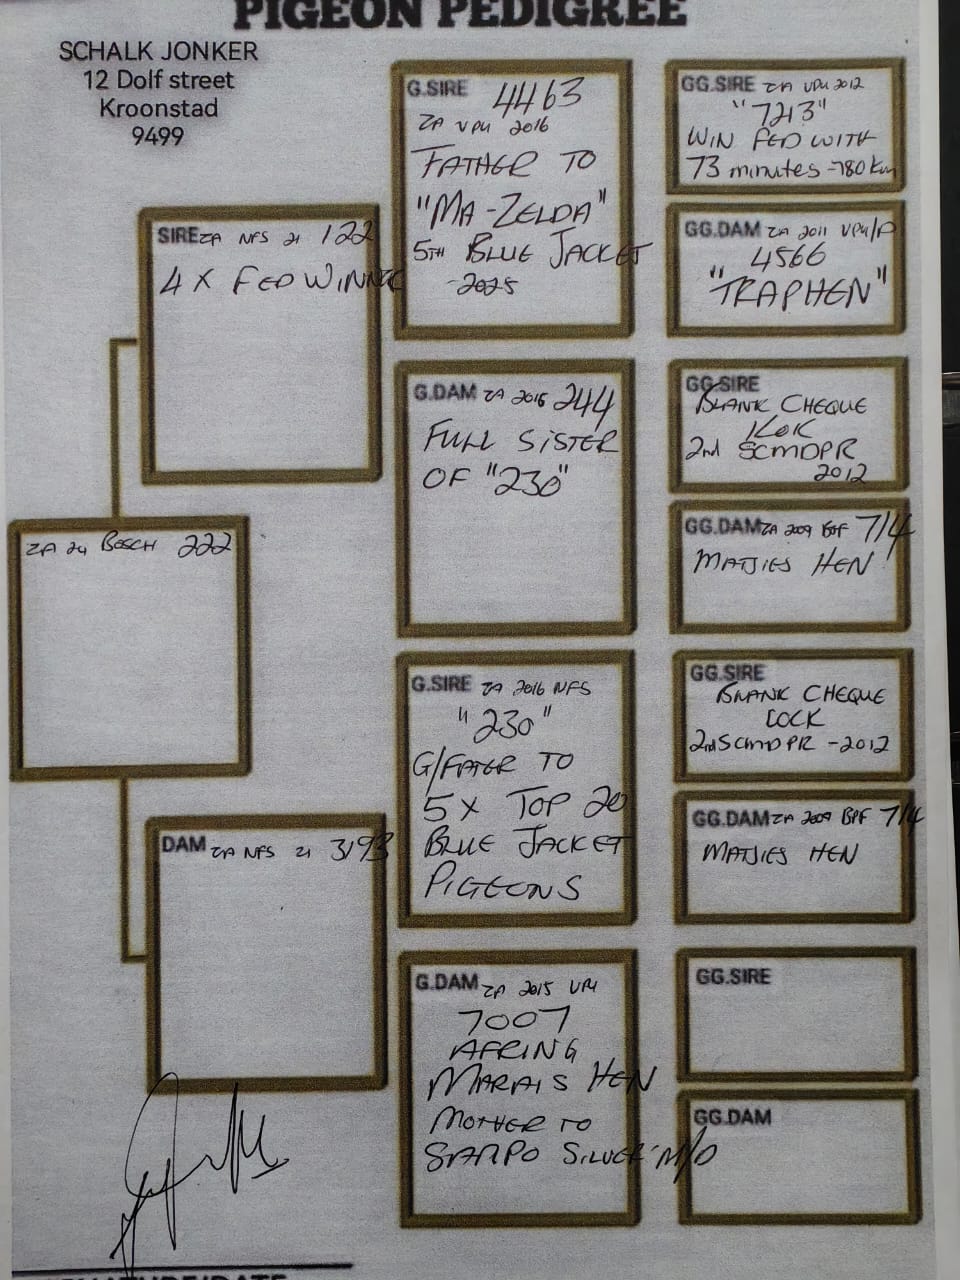 PIGEON PEDIGREE
SCHALK JONKER
12 Dolf street
Kroonstad
9499
ZA 24 BOSCH 222
SIRE ZA NFS 21 122
4 X FED WINNER
DAM ZA NFS 21 3193
G.SIRE 4463
ZA VPU 2016
FATHER TO
"MA-ZELDA"
5TH BLUE JACKET
-2025
G.DAM ZA 2016 244
FULL SISTER
OF "230"
G.SIRE ZA 2016 NFS
"230"
G/FATER TO
5 X TOP 20
BLUE JACKET
PIGEONS
G.DAM ZA 2015 VPU
7007
AFRING
MARAIS HEN
MOTHER TO
SILVER M/D
GG.SIRE ZA VPU 2012
"7213"
WIN FED WITH
73 minutes -780 km
GG.DAM ZA 2011 VPU/P
4566
"TRAPHEN"
GG.SIRE
BLANK CHEQUE
KOK
2nd SCMDPR
2012
GG.DAM ZA 2009 BPF 714
MATJIES HEN
GG.SIRE
BLANK CHEQUE
COCK
2nd SCMDPR -2012
GG.DAM ZA 2009 BPF 714
MATJIES HEN
GG.SIRE
GG.DAM